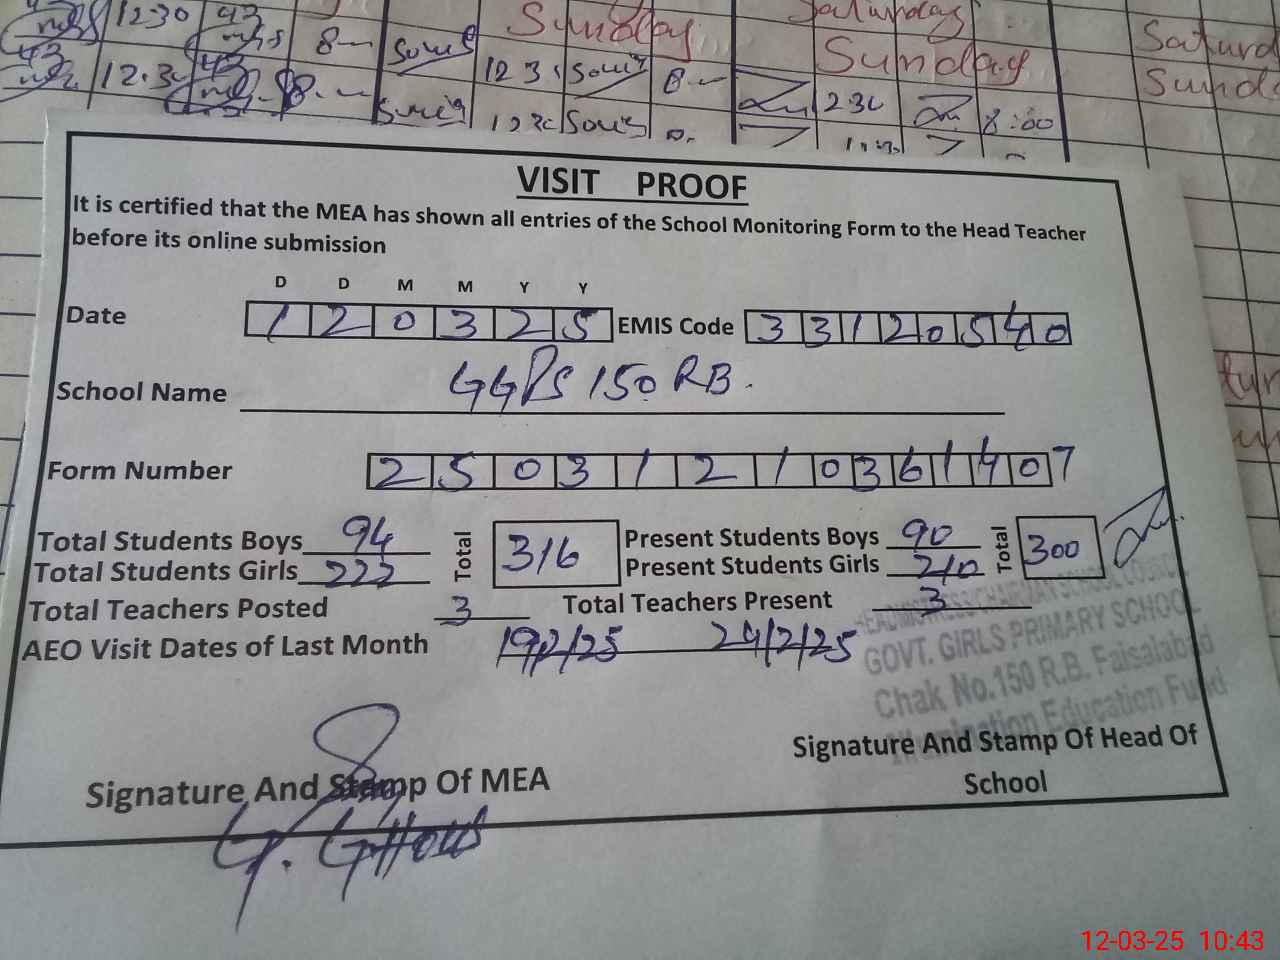 12.30
8
Sunday
Saturday
Sunday
Saturd
12.3
8
12 3
8
2 30
8:00
Sund
VISIT PROOF
It is certified that the MEA has shown all entries of the School Monitoring Form to the Head Teacher
before its online submission
D D M M Y Y
Date 1 2 0 3 2 5 EMIS Code 3 3 1 2 0 5 4 0
School Name GGPS 150 RB.
Form Number 2 5 0 3 1 2 1 0 3 6 1 4 0 7
Total Students Boys 94 Total 316 Present Students Boys 90 Total 300
Total Students Girls 222 Present Students Girls 210
Total Teachers Posted 3 Total Teachers Present 3
AEO Visit Dates of Last Month 19/2/25 24/2/25
GOVT. GIRLS PRIMARY SCHOOL
Chak No.150 R.B. Faisalabad
Education Fund
Signature And Stamp Of MEA
Signature And Stamp Of Head Of
School
12-03-25 10:43